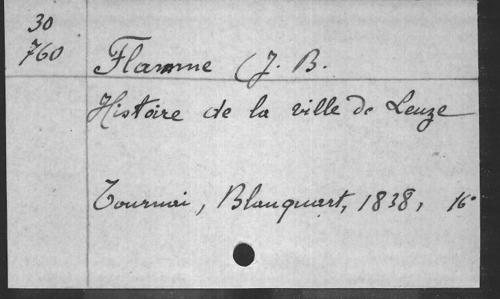 30
760
Flamme (J. B.
Histoire de la ville de Leuze
Tournai, Blanquart, 1838, 16°